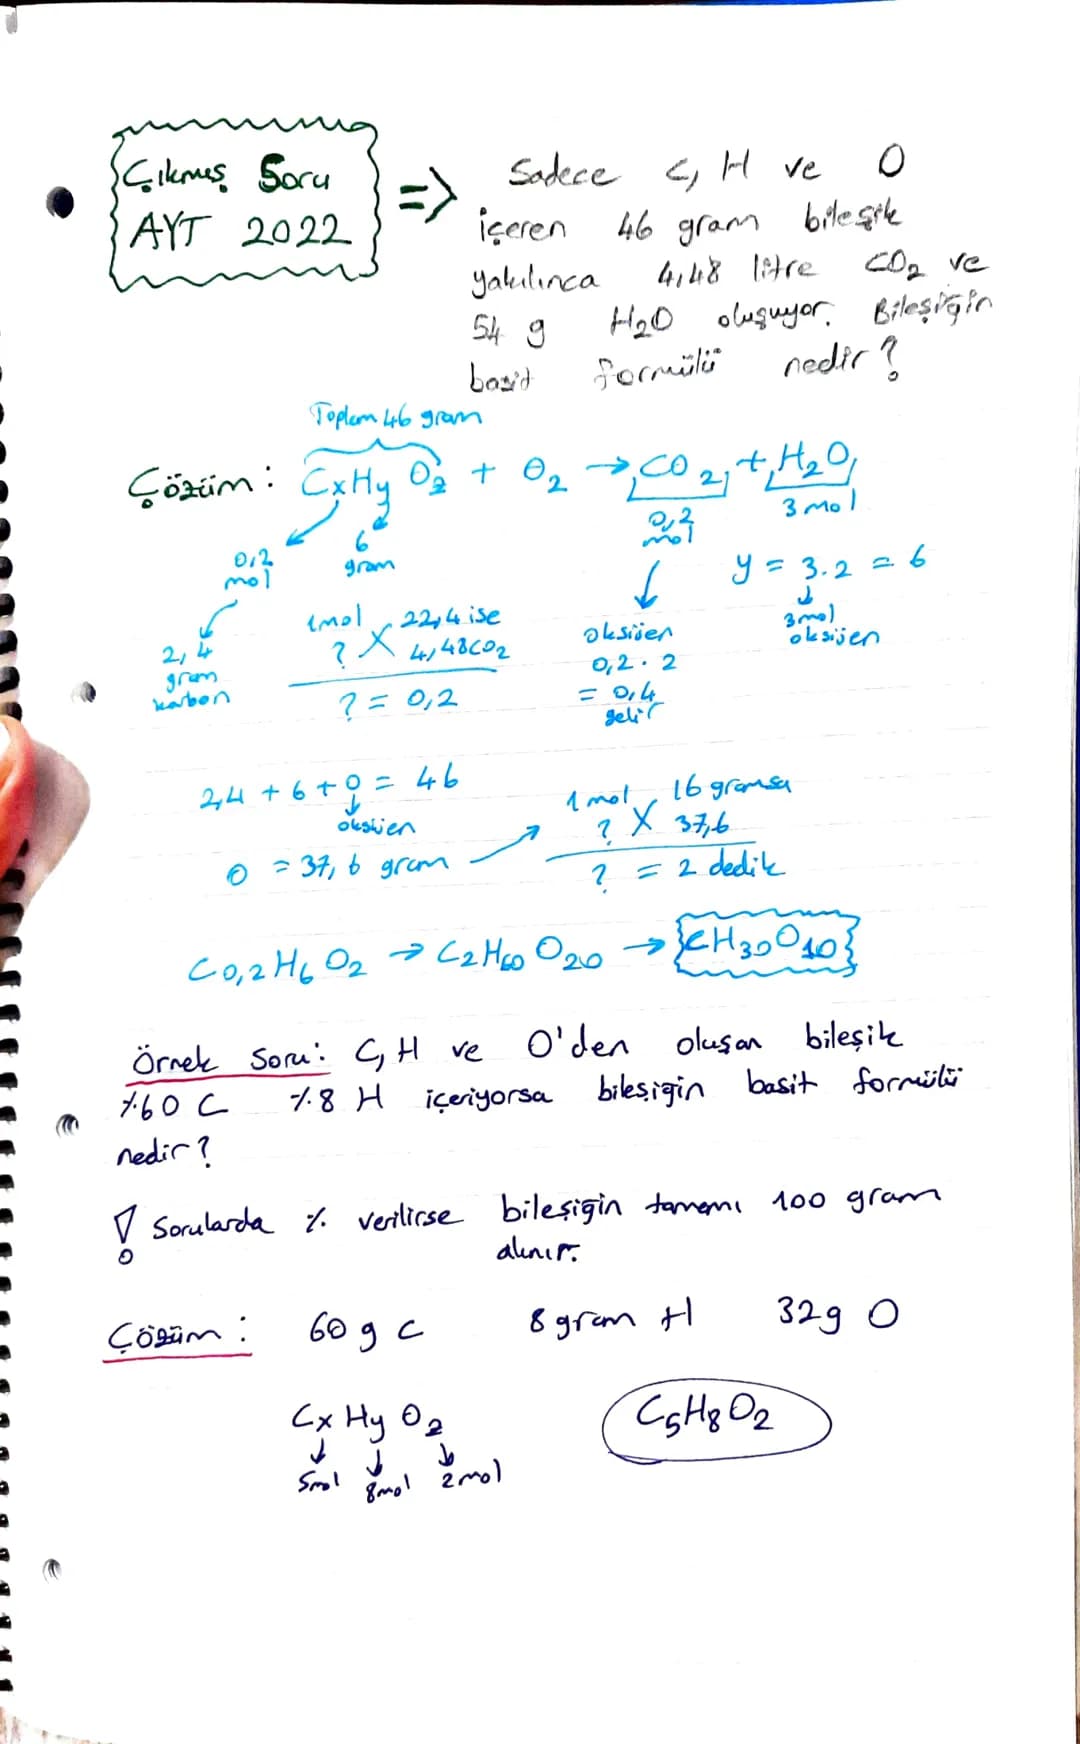 Çıkmış Soru
AYT 2022
=> Sadece C, H ve O
içeren 46 gram bileşik
yakılınca 4,48 litre CO2 ve
54 g H2O oluşuyor. Bileşiğin
basit formülü nedir?
Toplam 46 gram
Çözüm: CxHyOz + O2 → CO2 + H2O
0,2 mol
3 mol
0,2
mol
6
gram
y = 3.2 = 6
3mol
oksijen
2,4
gram
karbon
1mol 22,4 ise
? X 4,48CO2
? = 0,2
oksijen
0,2 . 2
= 0,4
gelir
2,4 + 6 + O = 46
oksijen
O = 37,6 gram
1 mol 16 gramsa
? X 37,6
? = 2 dedik
C0,2H6O2 → C2H60O20 → CH30O10
Örnek Soru: C, H ve O'den oluşan bileşik
%60 C %8 H içeriyorsa bileşiğin basit formülü
nedir?
! Sorularda % verilirse bileşiğin tamamı 100 gram
alınır.
Çözüm: 60 g C 8 gram H 32g O
CxHyOz
5mol 8mol 2mol
C5H8O2